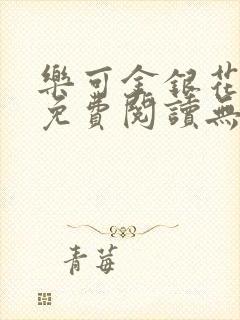 樂可金銀花
免費閱讀無
青莓